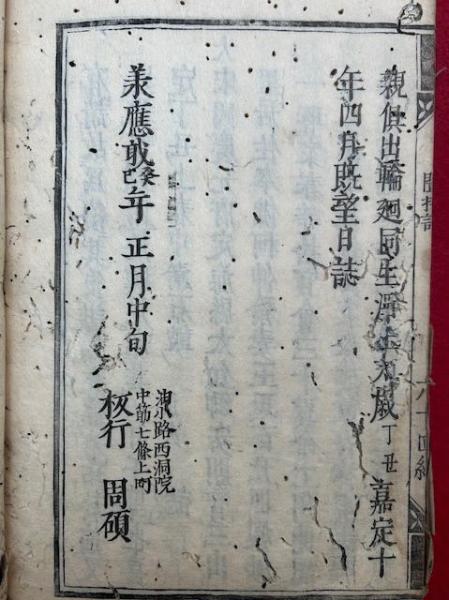 親俱出輪廻同生淨土大歲丁丑嘉定十
年四月既望日誌
承應貳癸巳年正月中旬
油小路西洞院
中節七條上町
板行 周碩